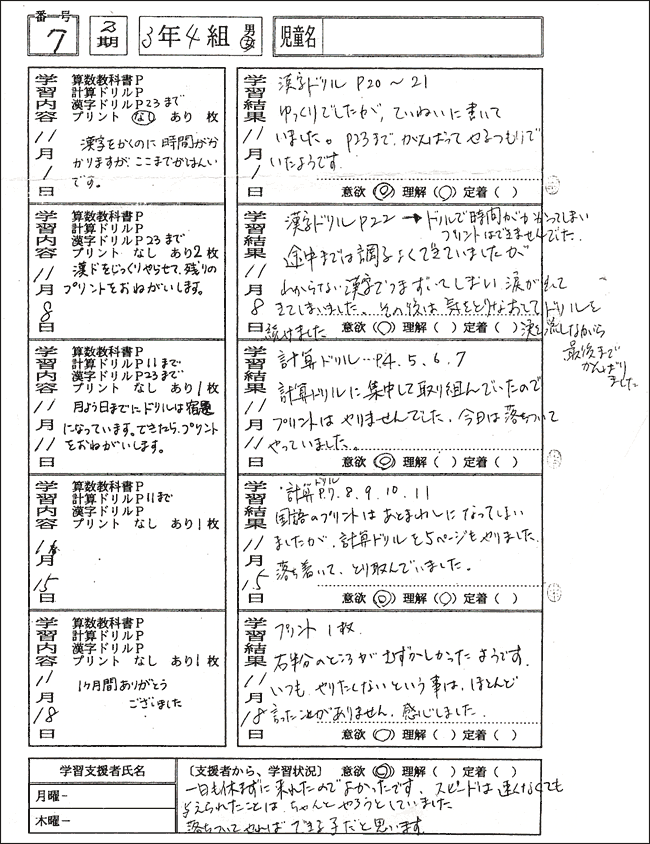 番号 7 3期 3年4組 男女 児童名
学習内容 11月1日
算数教科書P
計算ドリルP
漢字ドリルP23まで
プリント なし あり 枚
漢字をかくのに時間がか
かりますが、ここまでがはんい
です。
学習結果 11月1日
漢字ドリル P20～21
ゆっくりでしたが、ていねいに書いて
いました。P23まで、がんばってやるつもりで
いたようです。
意欲(◎)理解(○)定着( )
学習内容 11月8日
算数教科書P
計算ドリルP
漢字ドリルP23まで
プリント なし あり2枚
漢ドをじっくりやらせて、残りの
プリントをおねがいします。
学習結果 11月8日
漢字ドリルP22 → ドリルで時間がかかってしまい
プリントはできませんでした。
途中までは調子よくできていましたが
わからない漢字でつまずいてしまい 涙が出て
きてしまいました。その後は 気をとりなおしてドリルを
続けました
意欲(○)理解( )定着( )
涙を流しながら
最後まで
がんばり
ました
学習内容 11月11日
算数教科書P
計算ドリルP11まで
漢字ドリルP23まで
プリント なし あり1枚
月よう日までにドリルは宿題
になっています。できたら、プリント
をおねがいします。
学習結果 11月11日
計算ドリル…P4.5.6.7
計算ドリルに集中して取り組んでいたので
プリントはやりませんでした。今日は落ちついて
やっていました。
意欲(◎)理解( )定着( )
学習内容 月15日
算数教科書P
計算ドリルP11まで
漢字ドリルP
プリント なし あり1枚
学習結果 11月15日
計算ドリルP.7.8.9.10.11
国語のプリントはあとまわしになってしまい
ましたが、計算ドリルを5ページもやりました。
落ち着いて、とり組んでいました。
意欲(◎)理解(○)定着( )
学習内容 11月18日
算数教科書P
計算ドリルP
漢字ドリルP
プリント なし あり1枚
1ヶ月間ありがとう
ございました
学習結果 11月18日
プリント 1枚.
右半分のところがむずかしかったようです。
いつも、やりたくないという事は、ほとんど
言ったことがありません。感心しました。
意欲(○)理解( )定着( )
学習支援者氏名
月曜−
木曜−
〔支援者から、学習状況〕 意欲(◎)理解( )定着( )
一日も休まずに来れたのでよかったです。スピードは速くなくても
与えられたことは、ちゃんとやろうとしていました
落ちついてやればできる子だと思います。